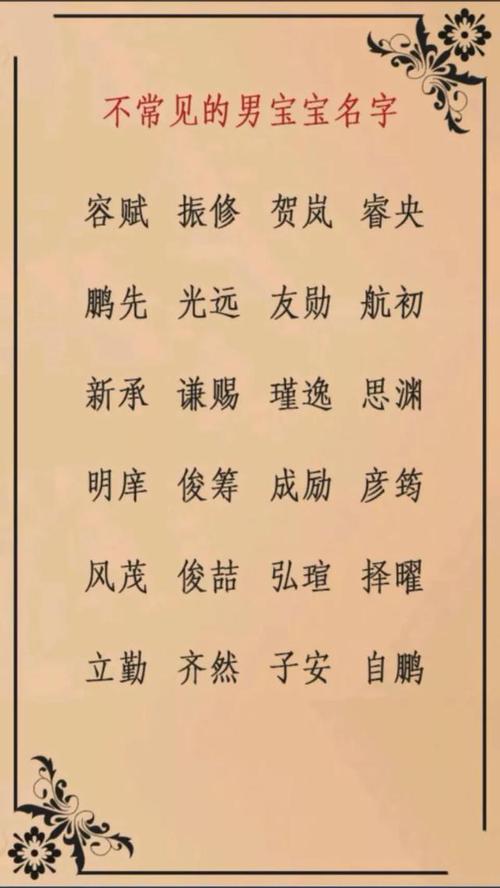 不常见的男宝宝名字
容赋 振修 贺岚 睿央
鹏先 光远 友勋 航初
新承 谦赐 瑾逸 思渊
明庠 俊筹 成励 彦筠
风茂 俊喆 弘瑄 择曜
立勤 齐然 子安 自鹏